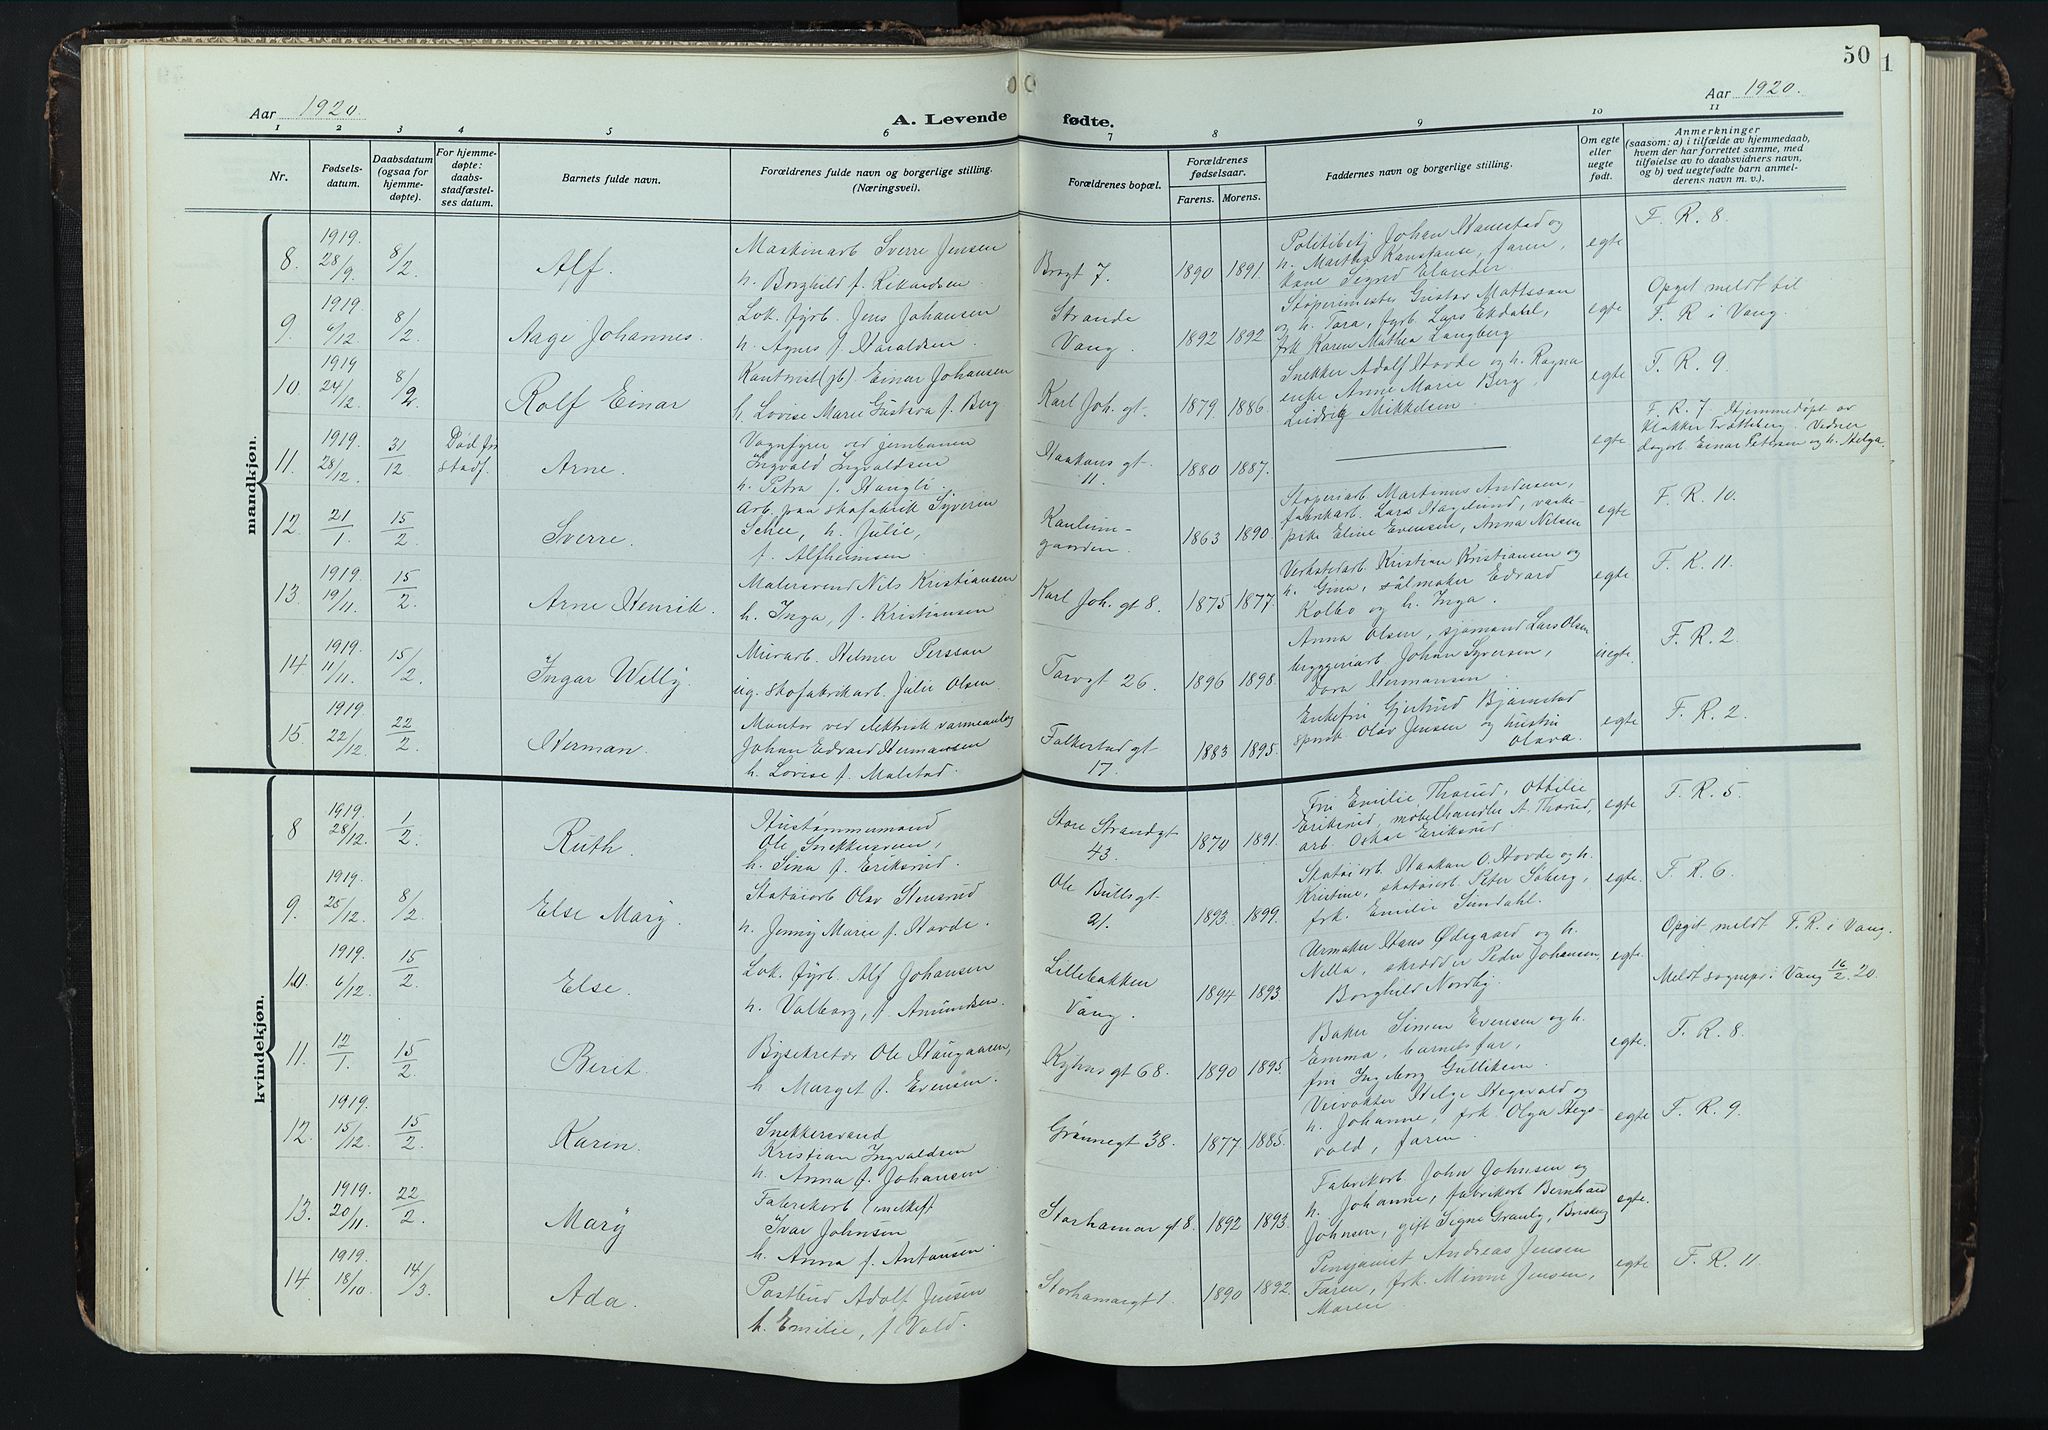 50
1
Aar 1920.
A. Levende fødte.
Aar 1920.
1 2 3 4 5 6 7 8 9 10 11
Nr.
Fødsels-
datum.
Daabsdatum
(ogsaa for
hjemme-
døpte).
For hjemme-
døpte:
daabs-
stadfæstel-
ses datum.
Barnets fulde navn.
Forældrenes fulde navn og borgerlige stilling.
(Næringsvei).
Forældrenes bopæl.
Forældrenes
fødselsaar.
Farens. Morens.
Faddernes navn og borgerlige stilling.
Om egte
eller
uegte
født.
Anmerkninger
(saasom: a) i tilfælde av hjemmedaab,
hvem der har forrettet samme, med
tilføielse av to daabsvidners navn,
og b) ved uegtefødte barn anmel-
derens navn m. v.).
mandkjøn.
8. 1919. 28/9 8/2 Alf.
Maskinarb Sverre Jensen
h. Borghild f. Rikardsen.
Bragt 7. 1890 1891.
Politibetj Johan Hanestad og
h. Martha Konstanse, faren,
kone Sigrid Elander
egte F. R. 8.
9. 1919. 6/12 8/2 Aage Johannes.
Lok. fyrb. Jens Johansen
h. Agnes f. Haraldsen.
Strande
Vang. 1892 1892.
Støperimester Gustav Mattsson
og h. Tora, fyrb. Lars Ekdahl,
frk Karen Mathea Langberg
egte Opget meldt til
F. R i Vang.
10. 1919 24/12 8/2 Rolf Einar
Kontorist (jb) Einar Johansen
h. Lovise Marie Gustava f. Berg
Karl Joh. gt. 1879. 1886.
Snekker Adolf Hovde og h. Ragna
enke Anne Marie Berg,
Ludvig Mikkelsen.
egte F. R. 9.
11. 1919. 28/12 31/12 Død før
stadf. Arne.
Vognfyrer ved jernbanen
Ingvald Ingvaldsen
h. Petra f. Haugli.
Haakons gt.
11. 1880 1887.
egte F. R. 7. Hjemmedøpt av
klokker Trætteberg. Vidner
dagarb Einar Petersen og h. Helga.
12. 21/1. 15/2 Sverre.
Arb. paa skofabrik Syverin
Schee, h. Julie,
f. Alfheimsen.
Kaulum-
gaarden. 1863 1890.
Støperiarb Martinus Andersen,
fabrikarb. Lars Haglund, vaske-
pike Eline Evensen, Anna Nilsen
egte F. R. 10.
13. 1919. 19/11. 15/2 Arne Henrik.
Malersvend Nils Kristiansen
h. Inga, f. Kristiansen
Karl Joh. gt 8. 1875 1877.
Verkstedarb Kristian Kristiansen og
h. Gina, salmaker Edvard
Kolbo og h. Inga.
egte F. R. 11.
14 1919. 11/11. 15/2 Ingar Willy.
Murarb. Helmer Persson
ug. skofabrikarb. Julie Olsen.
Torvgt 26. 1896 1898.
Anna Olsen, sjømand Lars Olsen
bryggeriarb Johan Syversen,
Dora Hermansen.
uegte. F. R. 2.
15. 1919 22/12. 22/2. Herman.
Montør ved elektrisk varmeanlæg
Johan Edvard Hermansen
h. Lovise f. Malstad.
Falkestad gt
17. 1883 1895.
Enkefru Gjertrud Bjørnstad
Olav Jensen og hustru
Olava.
egte F. R. 2.
kvindekjøn.
8 1919. 28/12. 1/2. Ruth.
Hustømmermand
Ole Snekkersveen,
h. Sina f. Eriksrud.
Store Strandgt
43. 1870 1891.
Fru Emilie Thorud, Ottilie
Eriksrud, møbelhandler A. Thorud,
arb. Oskar Eriksrud
egte F. R. 5.
9. 1919. 25/12. 8/2 Else Mary.
Skotøiarb Olav Stensrud
h. Jenny Marie f. Hovde.
Ole Bullsgt
21. 1893. 1899.
Skotøiarb. Haakon O. Hovde og h.
Kristine, skotøiarb. Peter Søberg,
frk. Emilie Sundahl.
egte. F. R. 6.
10. 1919. 6/12. 15/2 Else.
Lok. fyrb. Alf Johansen
h. Valborg, f. Amundsen.
Lillebakken
Vang. 1894 1893.
Urmaker Hans Ødegaard og h.
Nilla, skrædder Peder Johansen,
Borghild Nordby.
egte. Opget meldt F. R. i Vang.
Meldt sognepr i Vang 16/2. 20.
11. 12/1. 15/2. Berit.
Bysekretær Ole Haugaasen,
h. Margit f. Evensen.
Kyhns gt 68. 1890 1895.
Baker Simen Evensen og h.
Emma, barnets far,
fru Ingeborg Gulliksen.
egte. F. R. 8.
12. 1919. 15/12. 15/2. Karen.
Snekkersvend
Kristian Ingvaldsen
h. Anna f. Johansen.
Grønnegt 38. 1877 1885.
Veivokter Helge Hegsvold og
h. Johanne, frk. Olga Hegs-
vold, faren.
egte F. R. 9.
13. 1919. 20/11. 22/2. Mary
Fabrikarb (melkef
Ivar Johnsen
h. Anna f. Antonsen.
Storhamar gt 8. 1892 1893.
Fabrikarb John Johnsen og
h. Johanne, fabrikarb Bernhard
Johnsen, gift Signe Granly, Brisk
egte.
14. 1919. 18/10. 14/3. Ada.
Postbud Adolf Jensen
h. Emilie, f. Vold.
Storhamargt 1. 1890 1892.
Pensjonist Andreas Jensen
Faren, frk. Minna Jensen,
Maren.
egte F. R. 11.